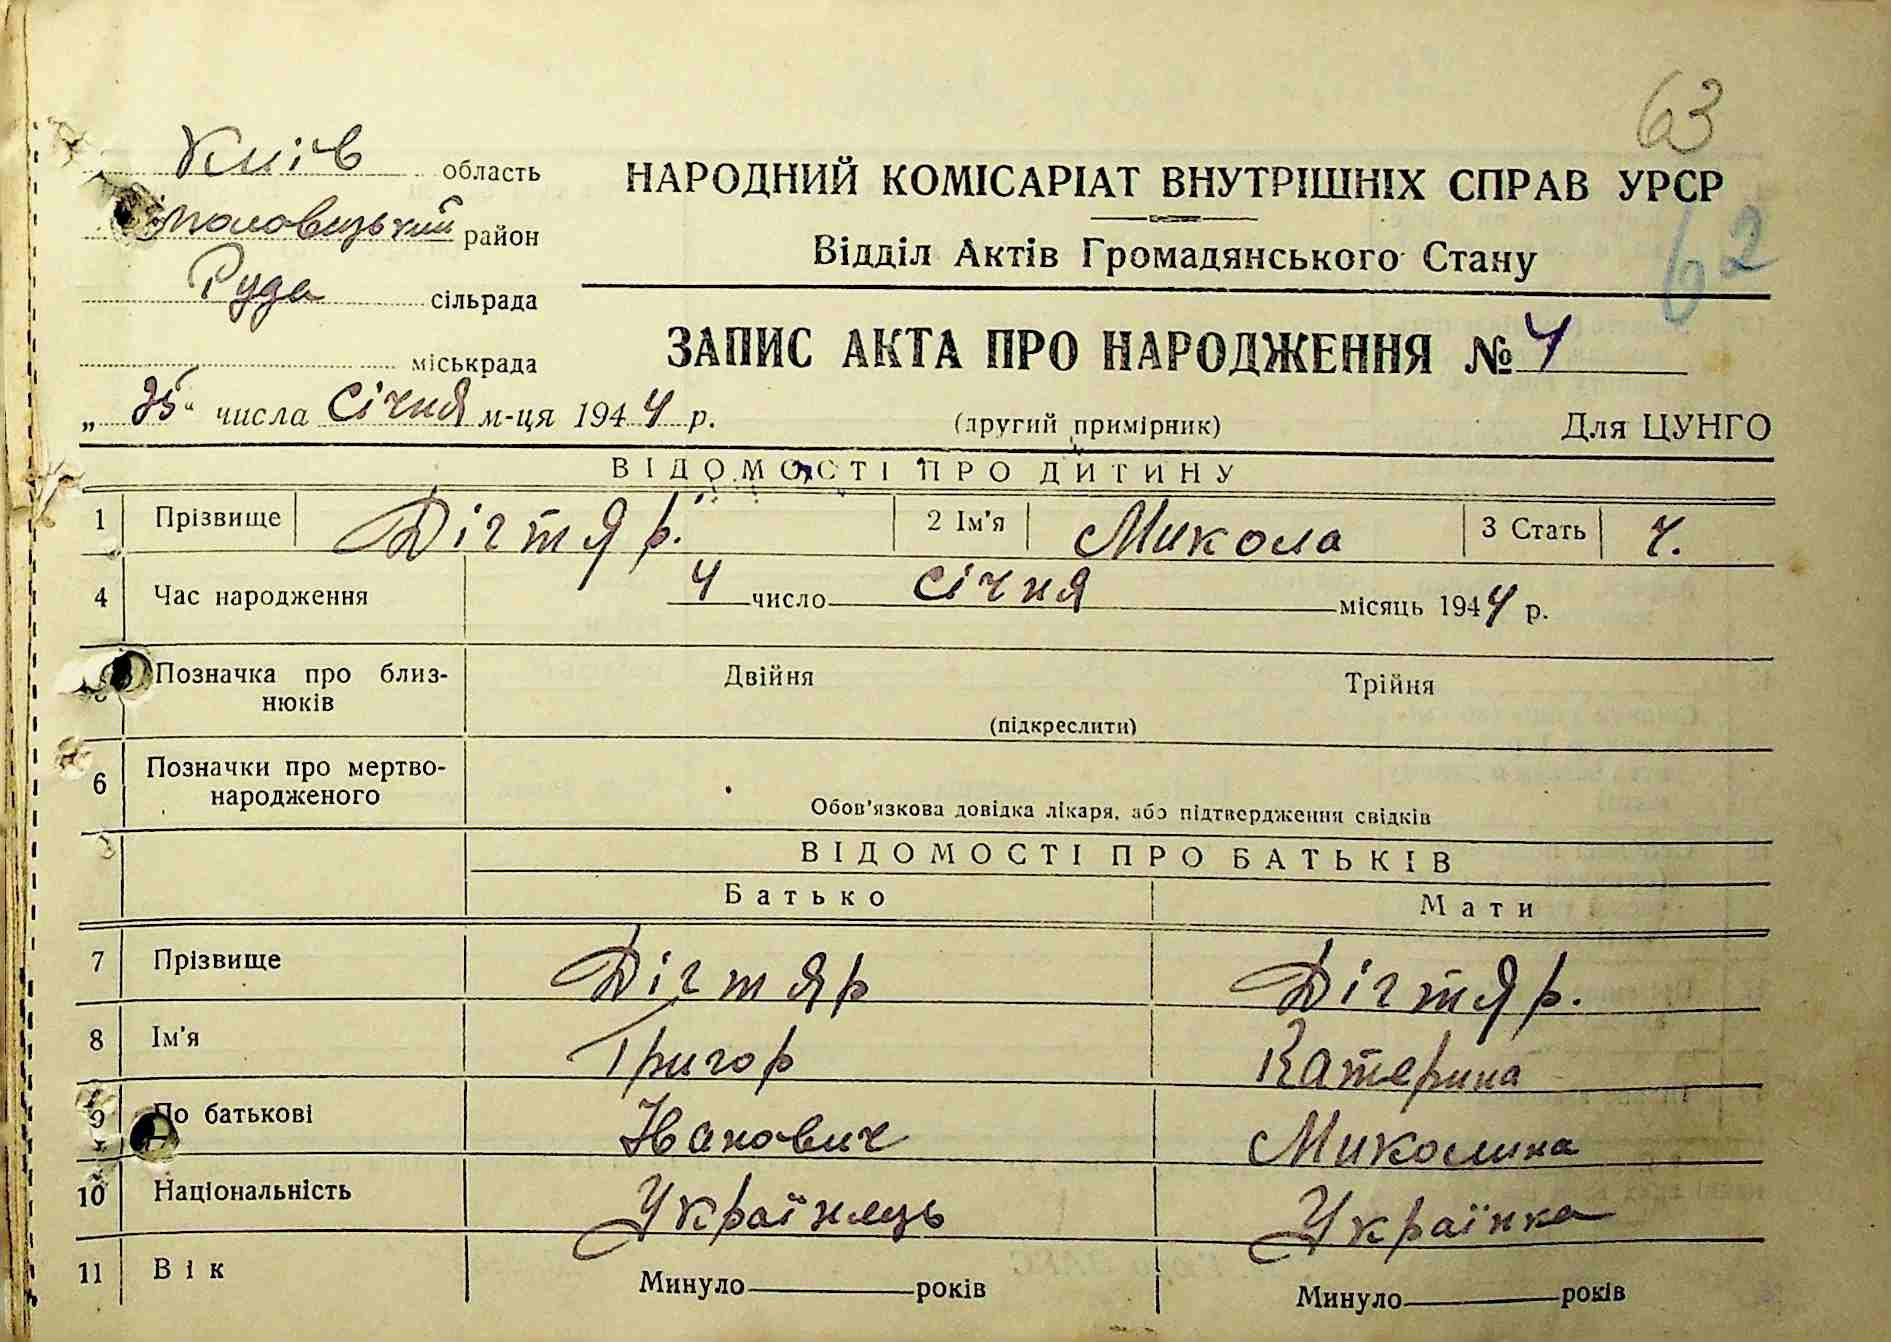 63
Київ область
НАРОДНИЙ КОМІСАРІАТ ВНУТРІШНІХ СПРАВ УРСР
половецький район
Відділ Актів Громадянського Стану
62
Руда сільрада
ЗАПИС АКТА ПРО НАРОДЖЕННЯ № 4
міськрада
„ 25 “ числа Січня м-ця 1944 р.
(другий примірник)
Для ЦУНГО
ВІДОМОСТІ ПРО ДИТИНУ
1 Прізвище Дігтяр. 2 Ім'я Микола 3 Стать ч.
4 Час народження 4 число Січня місяць 1944 р.
Позначка про близ-
нюків
Двійня Трійня
(підкреслити)
6 Позначки про мертво-
народженого
Обов'язкова довідка лікаря, або підтвердження свідків
ВІДОМОСТІ ПРО БАТЬКІВ
Батько Мати
7 Прізвище Дігтяр Дігтяр.
8 Ім'я Григор Катерина
9 По батькові Іванович Миколина
10 Національність Українець Українка
11 Вік Минуло років Минуло років